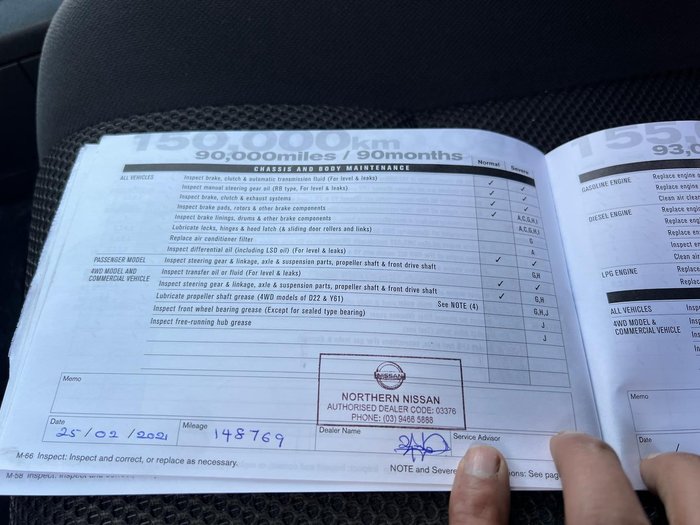 150,000km
90,000miles / 90months
Normal Severe
CHASSIS AND BODY MAINTENANCE
ALL VEHICLES Inspect brake, clutch & automatic transmission fluid (For level & leaks) ✓ ✓
Inspect manual steering gear oil (RB type, For level & leaks) ✓ ✓
Inspect brake, clutch & exhaust systems ✓ ✓
Inspect brake pads, rotors & other brake components ✓ A,C,G,H,I
Inspect brake linings, drums & other brake components A,C,G,H,I
Lubricate locks, hinges & hood latch (& sliding door rollers and links) G
Replace air conditioner filter A
Inspect differential oil (including LSD oil) (For level & leaks) ✓ ✓
PASSENGER MODEL Inspect steering gear & linkage, axle & suspension parts, propeller shaft & front drive shaft G,H
4WD MODEL AND COMMERCIAL VEHICLE Inspect transfer oil or fluid (For level & leaks) ✓ ✓
Inspect steering gear & linkage, axle & suspension parts, propeller shaft & front drive shaft ✓ G,H
Lubricate propeller shaft grease (4WD models of D22 & Y61) See NOTE (4) G,H,J
Inspect front wheel bearing grease (Except for sealed type bearing) J
Inspect free-running hub grease J
Memo
NISSAN
NORTHERN NISSAN
AUTHORISED DEALER CODE: 03376
PHONE: (03) 9466 5888
Date 25/02/2021 Mileage 148769 Dealer Name Service Advisor
M-66 Inspect: Inspect and correct, or replace as necessary. NOTE and Severe ons: See pag
155,
93,0
GASOLINE ENGINE Replace engine o
Replace engi
Clean air clea
DIESEL ENGINE Replace engi
Replace eng
Replace en
Inspect e
Clean air
LPG ENGINE Replac
Replac
ALL VEHICLES Insp
4WD MODEL & COMMERCIAL VEHICLE Insp
Ins
Memo
Date